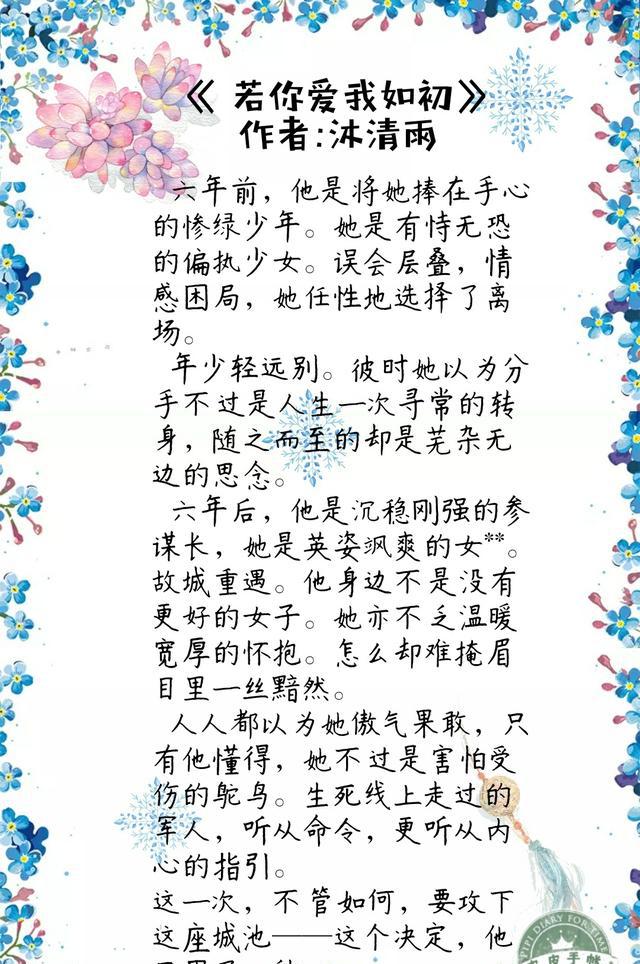 《 若你爱我如初》
作者:沐清雨
六年前，他是将她捧在手心
的惨绿少年。她是有恃无恐
的偏执少女。误会层叠，情
感困局，她任性地选择了离
场。
年少轻远别。彼时她以为分
手不过是人生一次寻常的转
身，随之而至的却是芜杂无
边的思念。
六年后，他是沉稳刚强的参
谋长，她是英姿飒爽的女**。
故城重遇。他身边不是没有
更好的女子。她亦不乏温暖
宽厚的怀抱。怎么却难掩眉
目里一丝黯然。
人人都以为她傲气果敢，只
有他懂得，她不过是害怕受
伤的鸵鸟。生死线上走过的
军人，听从命令，更听从内
心的指引。
这一次，不管如何，要攻下
这座城池——这个决定，他
PIPI DIARY FOR TIME
皮手帐